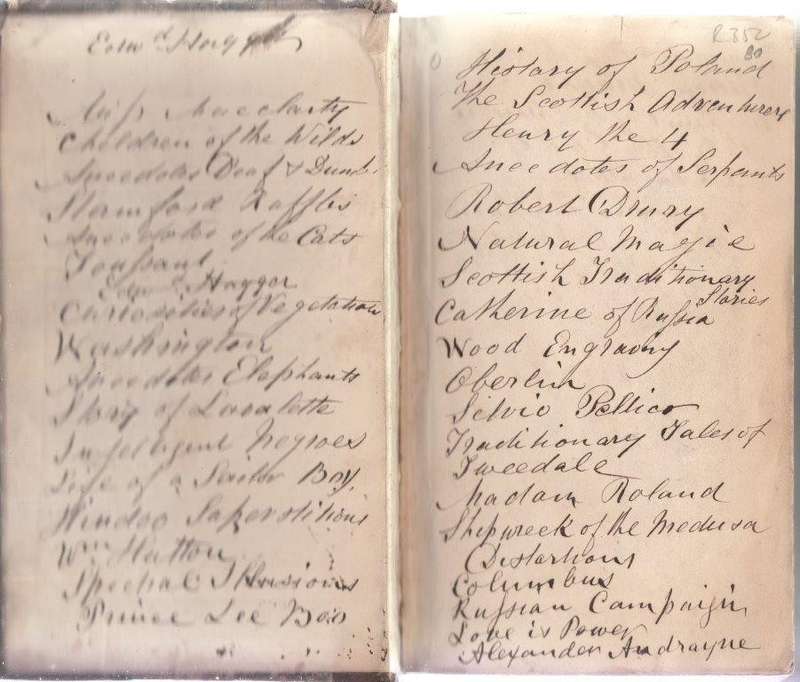 Edwd Hagger
Miss Macclarty
Children of the Wilds
Anecdotes Deaf & Dumb
Stamford Raffles
Anecdotes of the Cats
Toussant
Edwd Hagger
Curiosities of Vegetation
Washington
Anecdotes Elephants
Story of Lavalette
Intelligent Negroes
Life of a Sailor Boy
Hindoo Superstitions
Wm Hutton
Spectral Illusions
Prince Lee Boo
R352
80
History of Poland
The Scottish Adventurers
Henry the 4
Anecdotes of Serpants
Robert Drury
Natural Magic
Scottish Traditionary
Stories
Catherine of Russia
Wood Engraving
Oberlin
Silvio Pellico
Traditionary Tales of
Tweedale
Madam Roland
Shipwreck of the Medusa
Distortions
Columbus
Russian Campaign
Love is Power
Alexander Andrayne